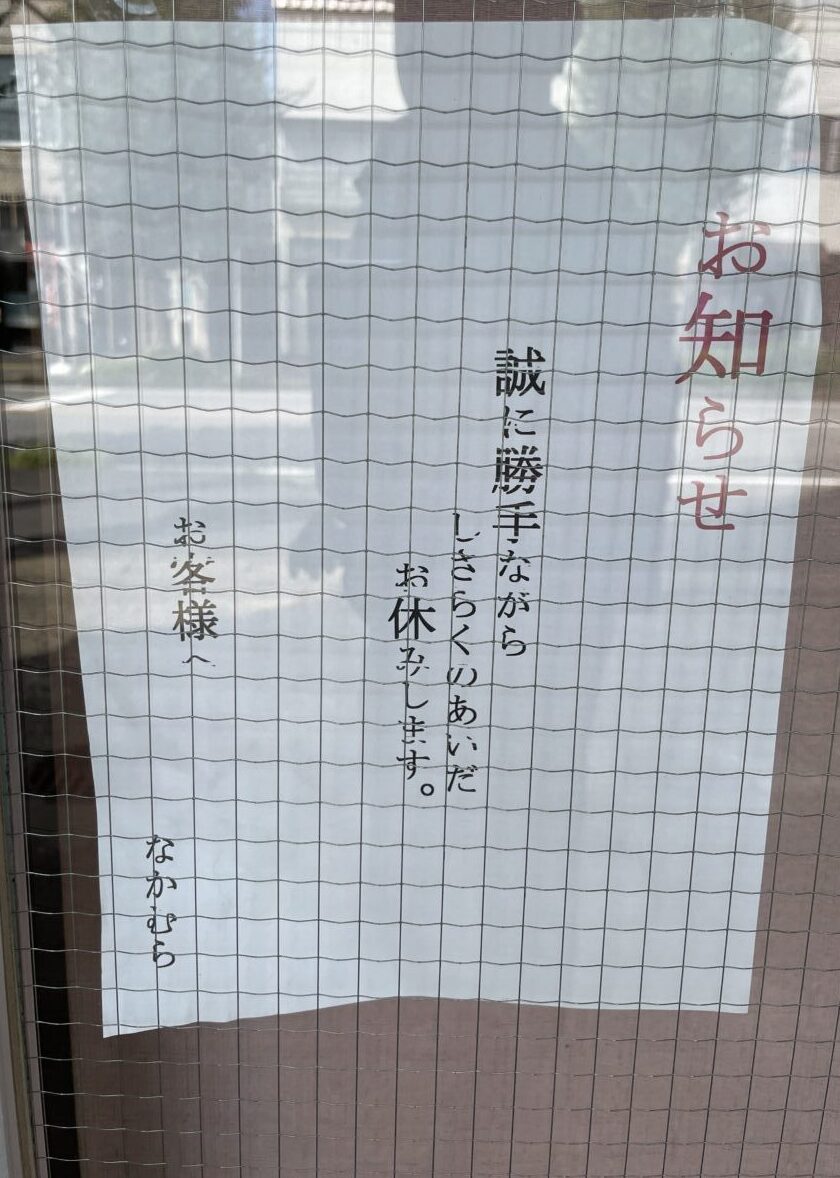 お知らせ
誠に勝手ながら
しばらくのあいだ
お休みします。
お客様へ
なかむら